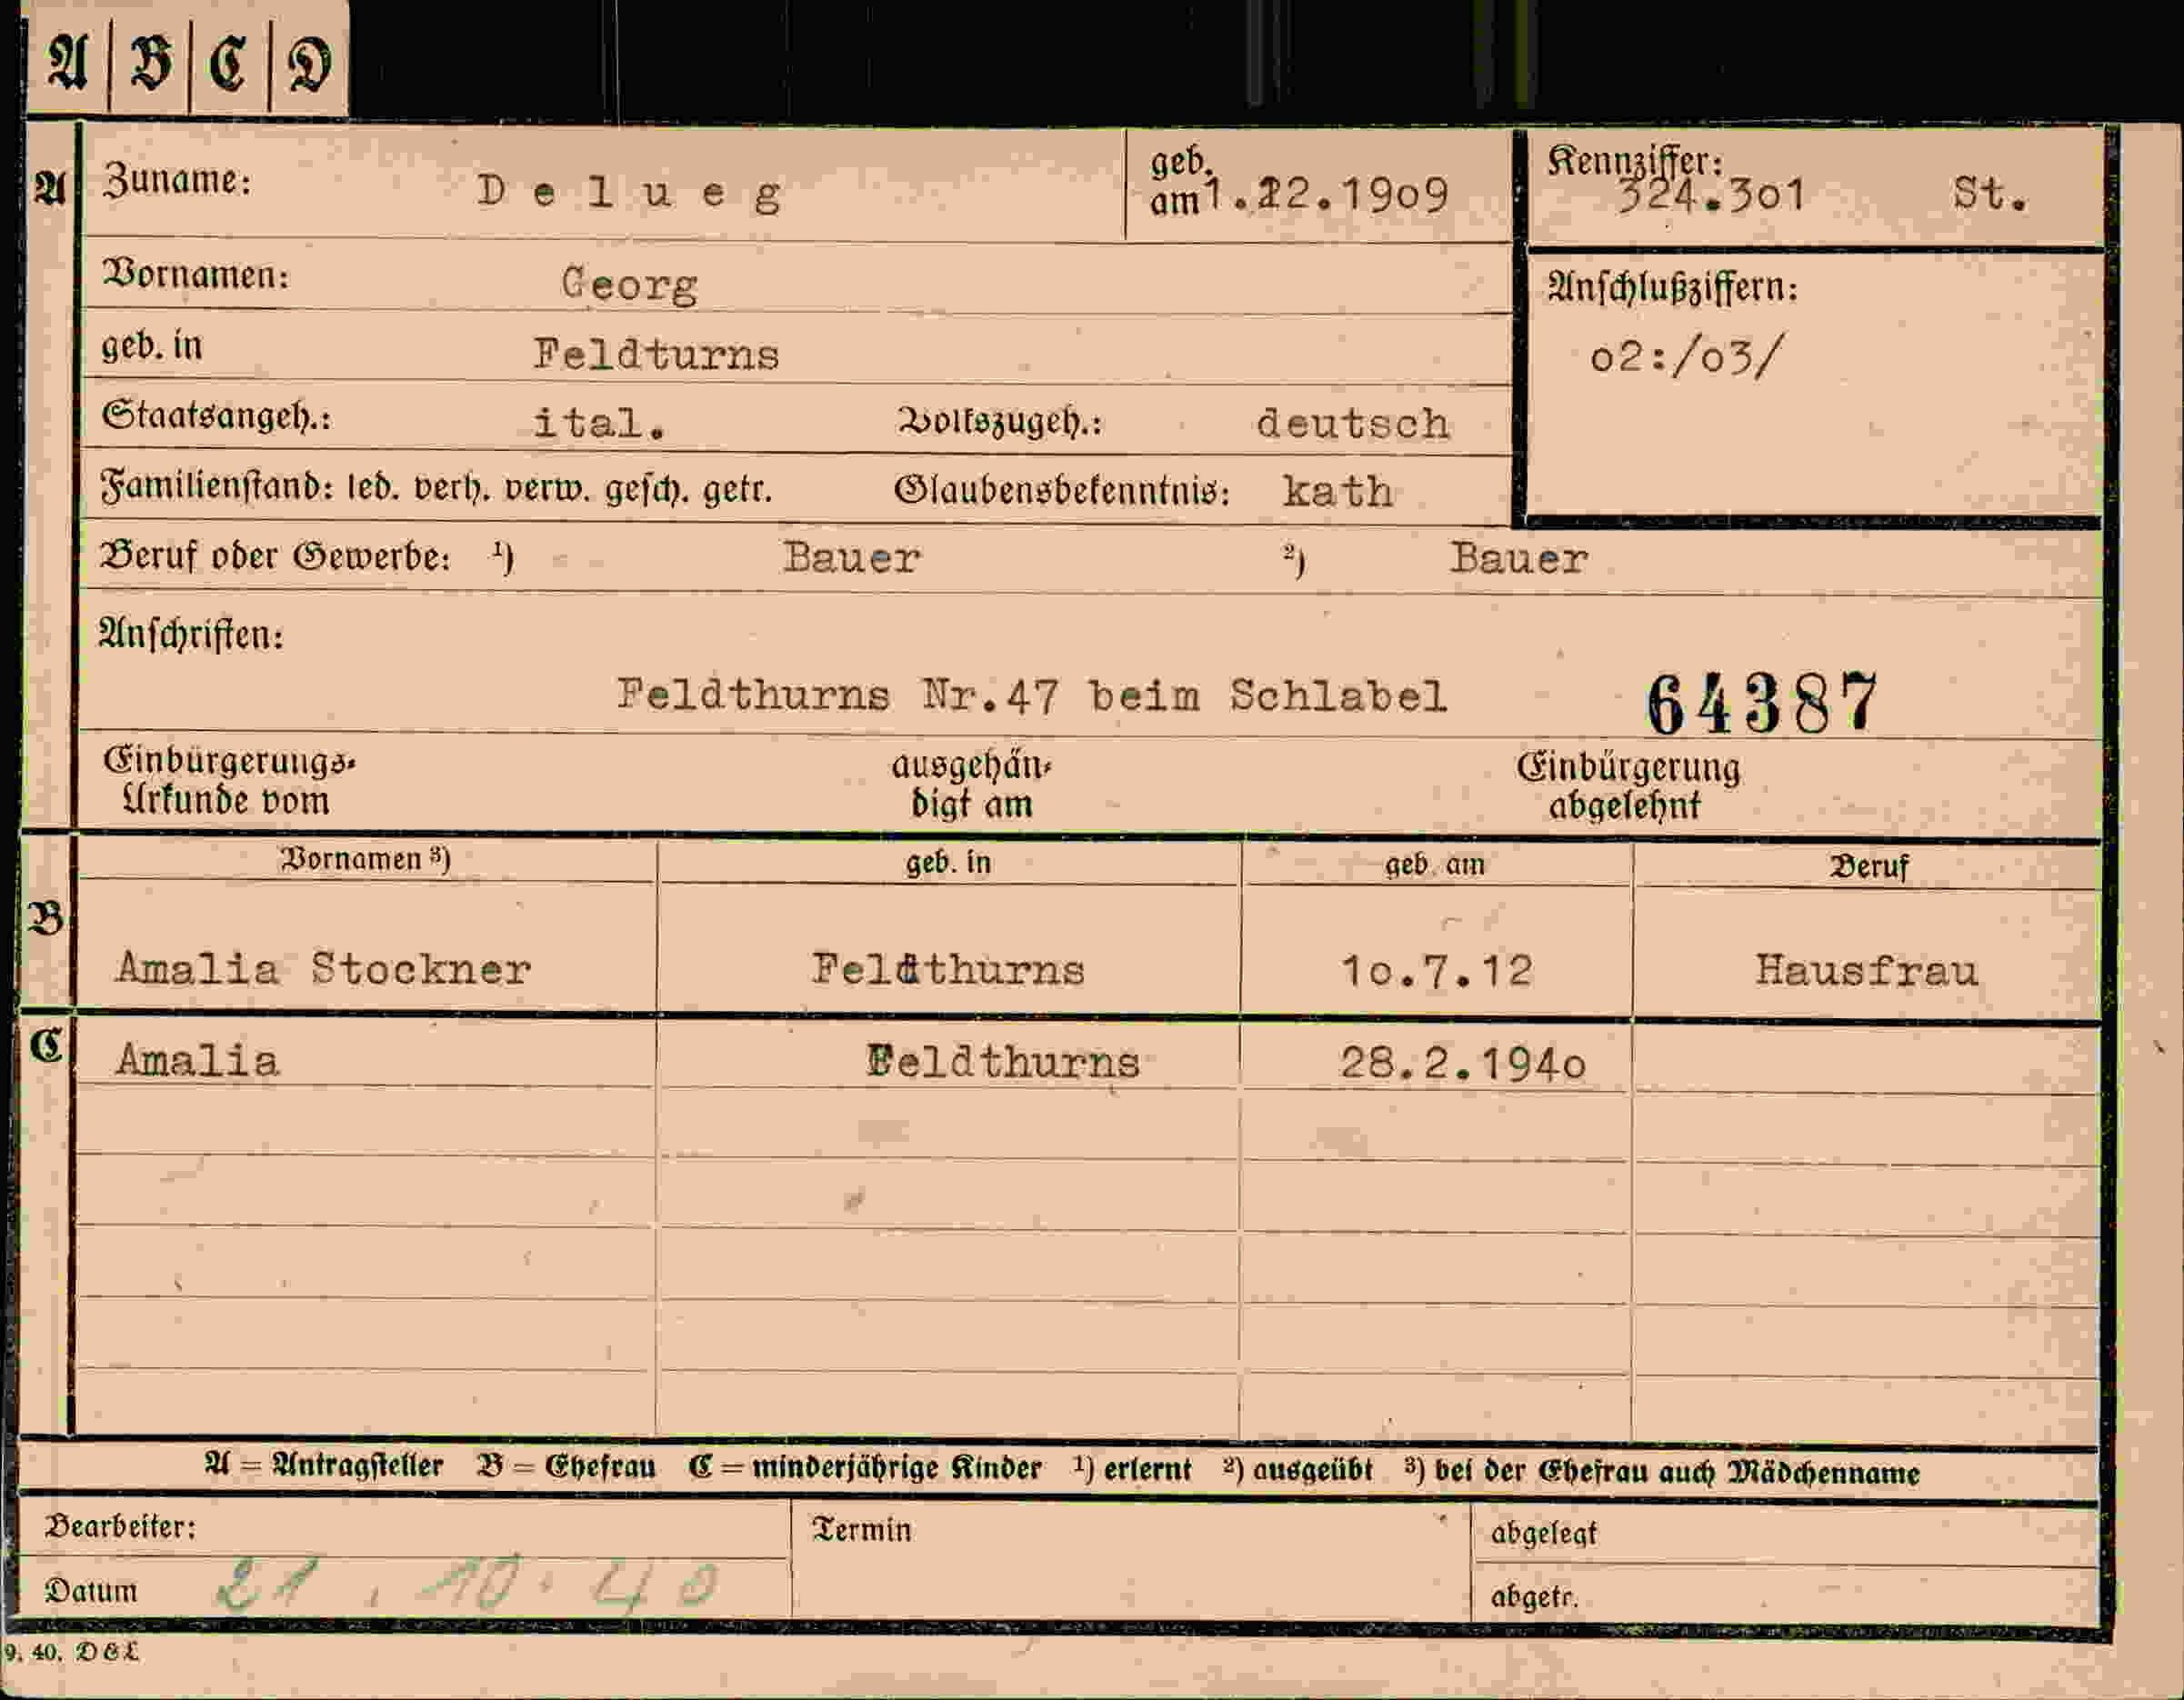 A | B | C | D
A Zuname: Delueg geb. am 1.12.1909 Kennziffer: 324.3o1 St.
Vornamen: Georg
Anschlußziffern:
geb. in Feldturns
o2:/o3/
Staatsangeh.: ital. Volkszugeh.: deutsch
Familienstand: led. verh. verw. gesch. getr. Glaubensbekenntnis: kath
Beruf oder Gewerbe: ¹) Bauer ²) Bauer
Anschriften:
Feldthurns Nr.47 beim Schlabel 64387
Einbürgerungs-
Urkunde vom
ausgehän-
digt am
Einbürgerung
abgelehnt
Vornamen ³) geb. in geb. am Beruf
B
Amalia Stockner Feldthurns 1o.7.12 Hausfrau
C Amalia Feldthurns 28.2.194o
A = Antragsteller B = Ehefrau C = minderjährige Kinder ¹) erlernt ²) ausgeübt ³) bei der Ehefrau auch Mädchenname
Bearbeiter: Termin abgelegt
Datum 21.10.40 abgetr.
9. 40. D&L